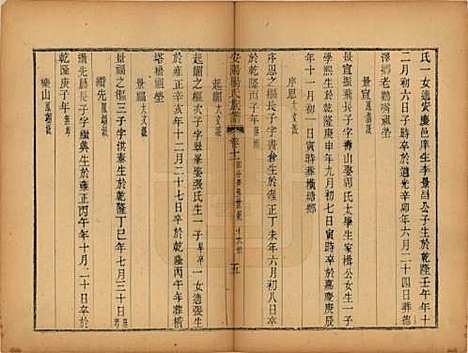 氏一女適安慶邑庠生李景昌公子生於乾隆壬午年十
二月初六日子時卒於道光辛卯年六月二十四日葬德
澤鄉老鸛嘴
景宣
景宣振飛長子字壽山娶周氏太學生家楫公女生一子
學熙生於乾隆丙申年九月初七日寅時卒於嘉慶庚辰
年十一月初一日寅時葬橫塘鄉
序恩
序恩之樞長子字書繪生於雍正丁未年六月初八日卒
於乾隆丙子年
安陽楊氏族譜 卷十一 五
起鯤
起鯤之樞次子字翠峯娶張氏生一子 一女適張生
於雍正辛亥年十二月二十七日卒於乾隆丙午年葬稍
塔橋
景福
景福之樞三子字供奉生於乾隆丁巳年七月三十日
續先
續先長子字繼興生於雍正丙午年十月二十日卒於
乾隆庚子年
樂山